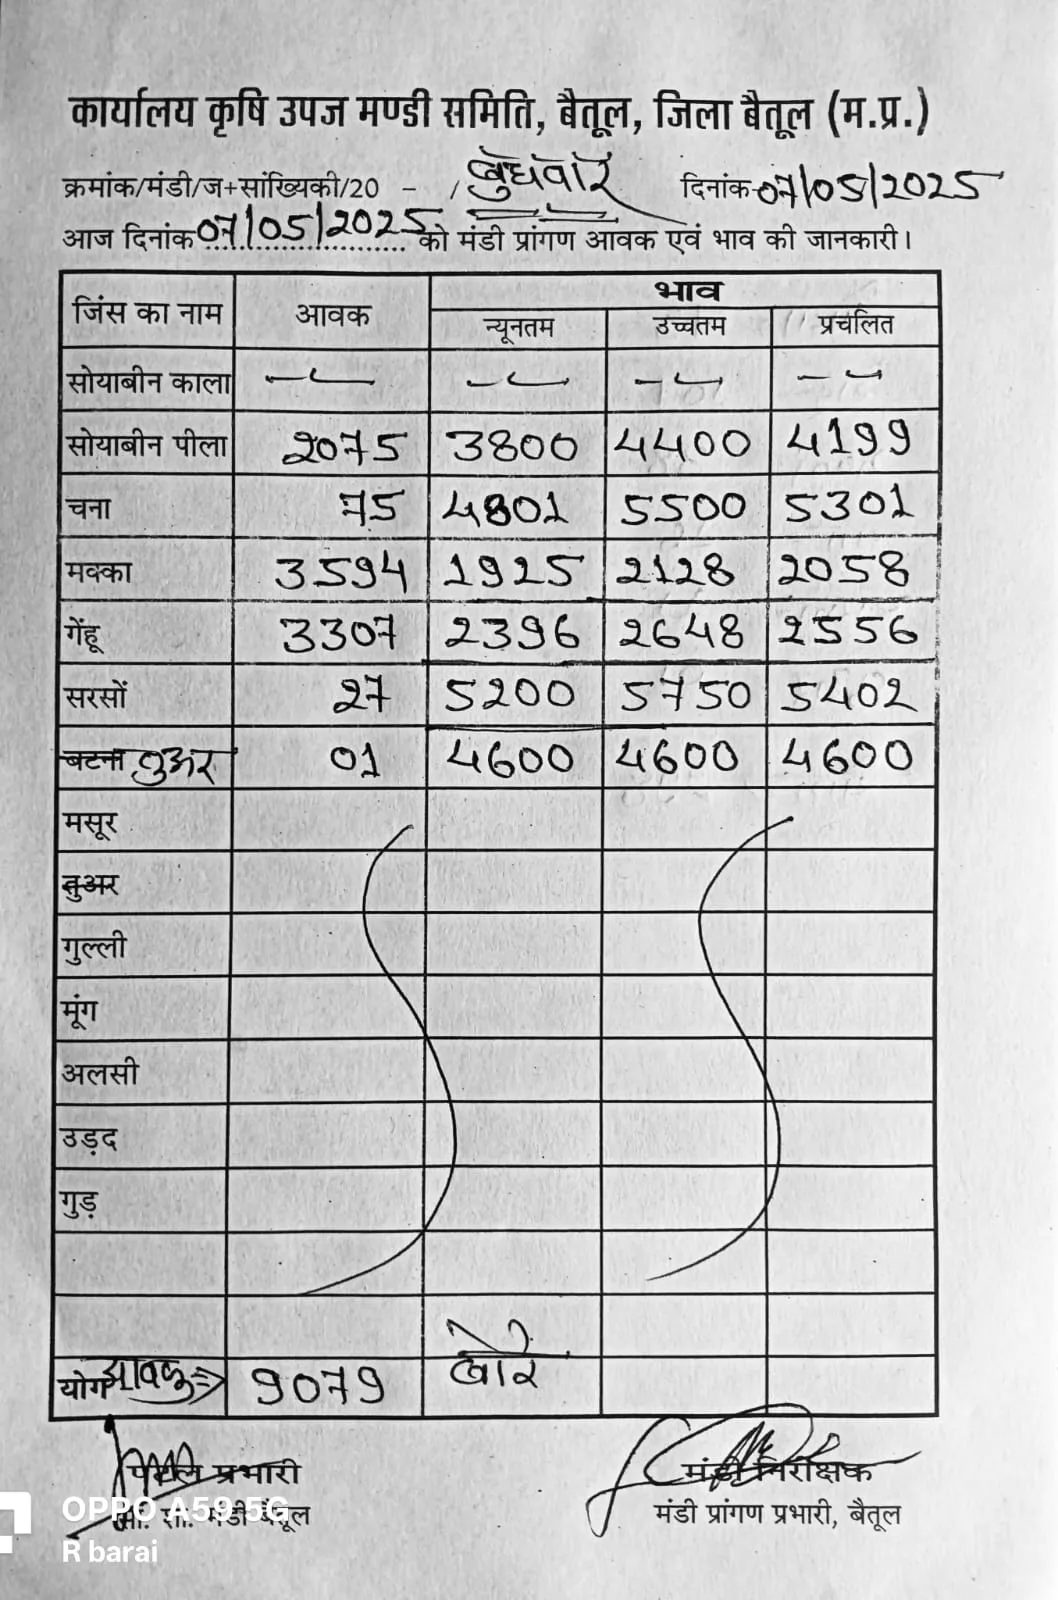 कार्यालय कृषि उपज मण्डी समिति, बैतूल, जिला बैतूल (म.प्र.)
क्रमांक/मंडी/ज+सांख्यिकी/20 - / बुधवार दिनांक 07/05/2025
आज दिनांक 07/05/2025 को मंडी प्रांगण आवक एवं भाव की जानकारी।
जिंस का नाम आवक भाव
न्यूनतम उच्चतम प्रचलित
सोयाबीन काला
सोयाबीन पीला 2075 3800 4400 4199
चना 75 4801 5500 5301
मक्का 3594 1925 2128 2058
गेंहू 3307 2396 2648 2556
सरसों 27 5200 5750 5402
बटना तुअर 01 4600 4600 4600
मसूर
तुअर
गुल्ली
मूंग
अलसी
उड़द
गुड़
योग आवक 9079 बोरे
प्रभारी मंडी निरीक्षक
मंडी बैतूल मंडी प्रांगण प्रभारी, बैतूल
OPPO A59 5G
R barai